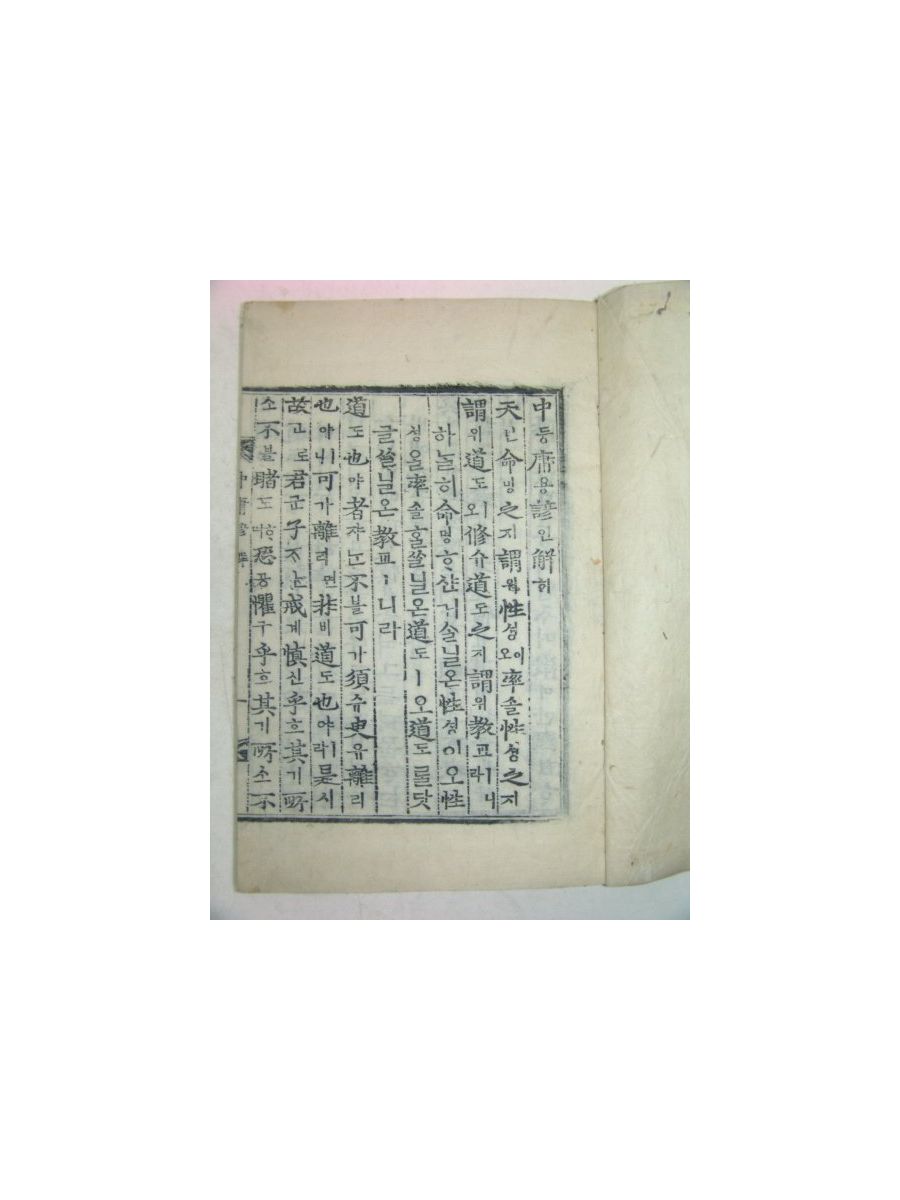 中듕庸용諺언解ᄒᆡ
天텬命명之지謂위性셩이오率솔性셩之지
謂위道도ㅣ오修슈道도之지謂위敎교ㅣ니라
하ᄂᆞᆯ히命명ᄒᆞ샨거슬닐온性셩이오性
셩을率솔홀쓸닐온道도ㅣ오道도ᄅᆞᆯ닷
글쓸닐온敎교ㅣ니라
道도也야者쟈ᄂᆞᆫ不블可가須슈臾유離리
也야ㅣ니可가離리면非비道도也야ㅣ라是시
故고로君군子ᄌᆞᄂᆞᆫ戒계愼신乎호其기所
소不블睹도ᄒᆞ며恐공懼구乎호其기所소不